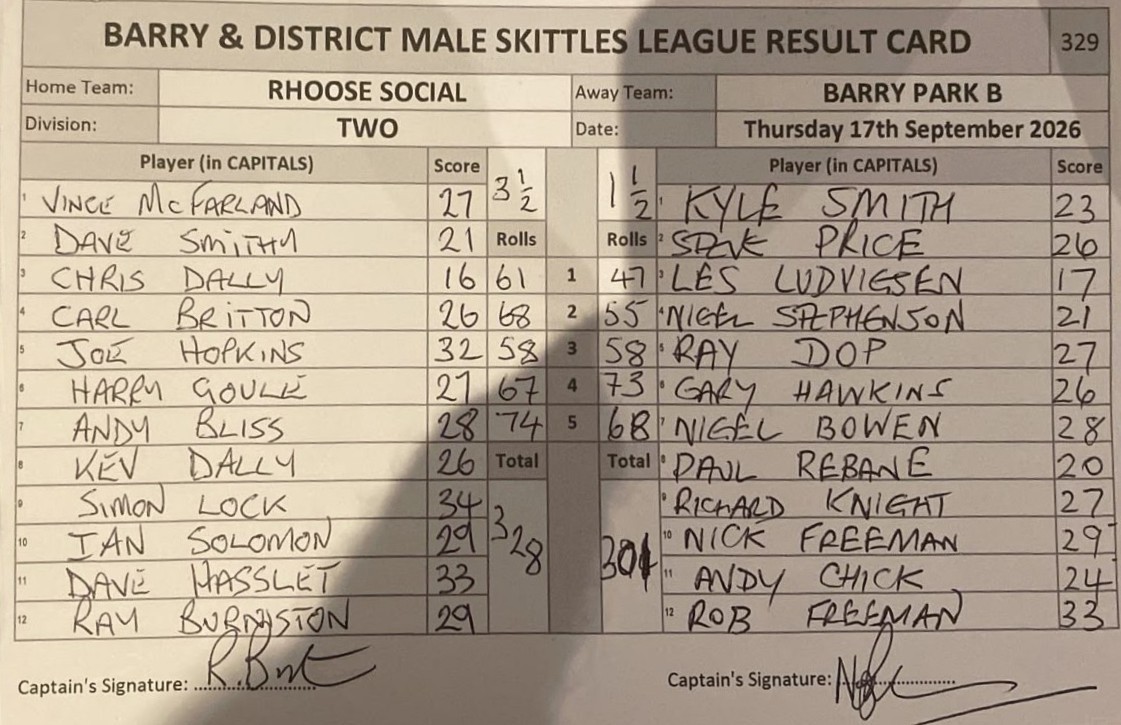 BARRY & DISTRICT MALE SKITTLES LEAGUE RESULT CARD 329
Home Team: RHOOSE SOCIAL Away Team: BARRY PARK B
Division: TWO Date: Thursday 17th September 2026
Player (in CAPITALS) Score 3 1/2 1 1/2 Player (in CAPITALS) Score
1 VINCE McFARLAND 27 1 KYLE SMITH 23
2 DAVE SMITHY 21 Rolls Rolls 2 STEVE PRICE 26
3 CHRIS DALLY 16 61 1 47 3 LES LUDVIGSEN 17
4 CARL BRITTON 26 68 2 55 4 NIGEL STEPHENSON 21
5 JOE HOPKINS 32 58 3 58 5 RAY DOP 27
6 HARRY GOULE 27 67 4 73 6 GARY HAWKINS 26
7 ANDY BLISS 28 74 5 68 7 NIGEL BOWEN 28
8 KEV DALLY 26 Total Total 8 PAUL REBANE 20
9 SIMON LOCK 34 328 301 9 RICHARD KNIGHT 27
10 IAN SOLOMON 29 10 NICK FREEMAN 29
11 DAVE HASSLET 33 11 ANDY CHICK 24
12 RAY BURNISTON 29 12 ROB FREEMAN 33
Captain's Signature: Captain's Signature: